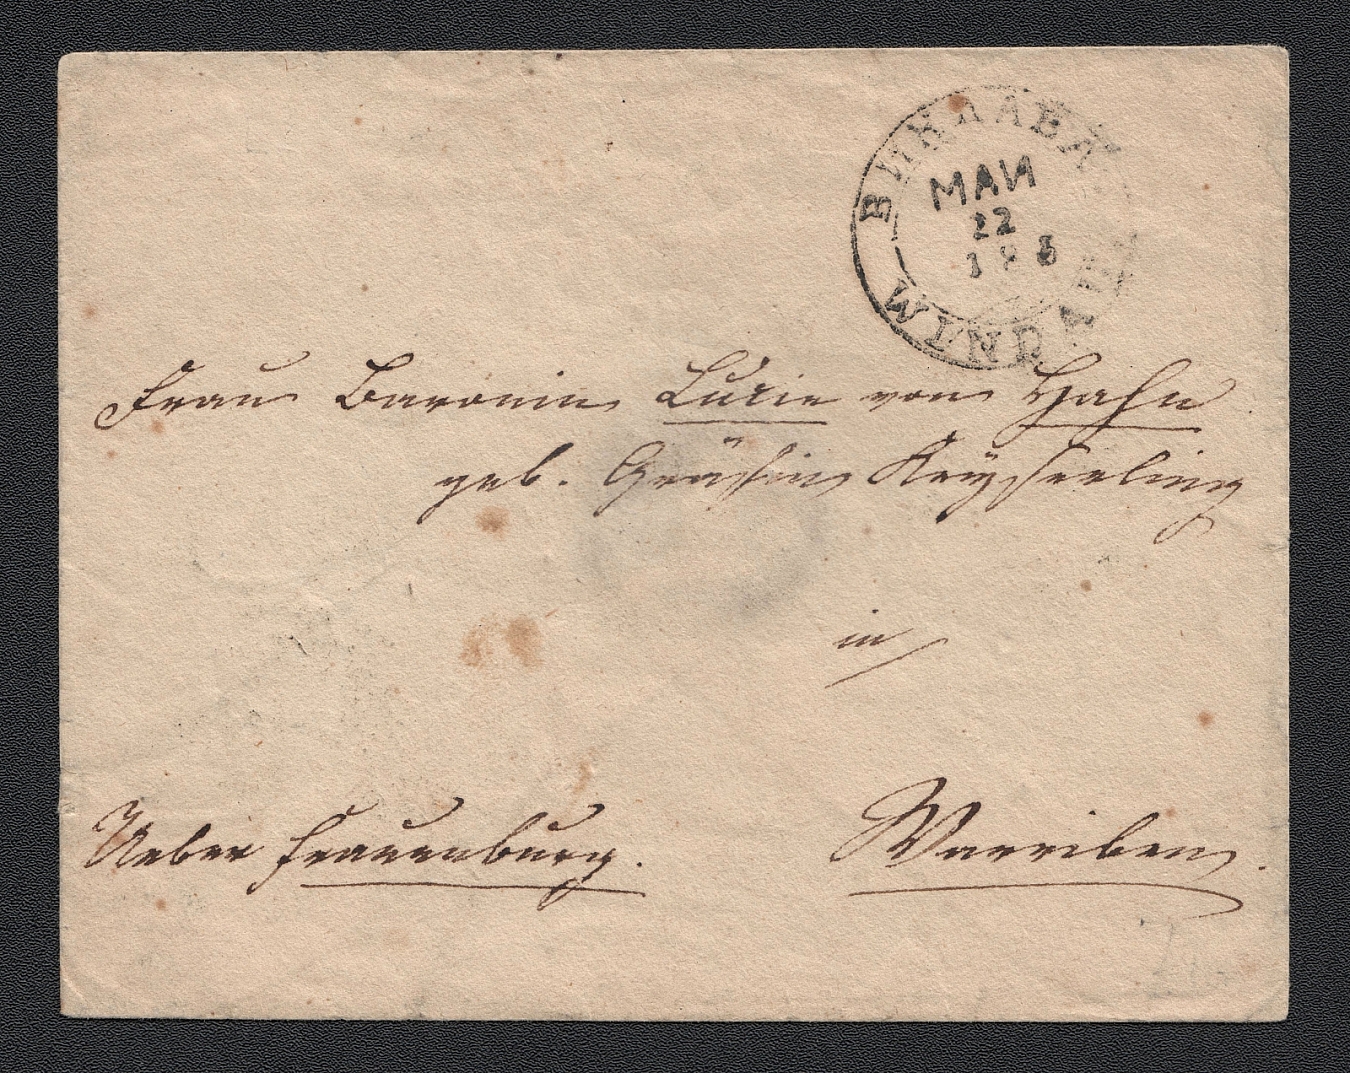 ВИНДАВА
МАИ
22
WINDAU
Frau Baronin Lucie von Hahn
geb. Gräfin Keyserling
in
Ueber Frauenburg. Warriben.